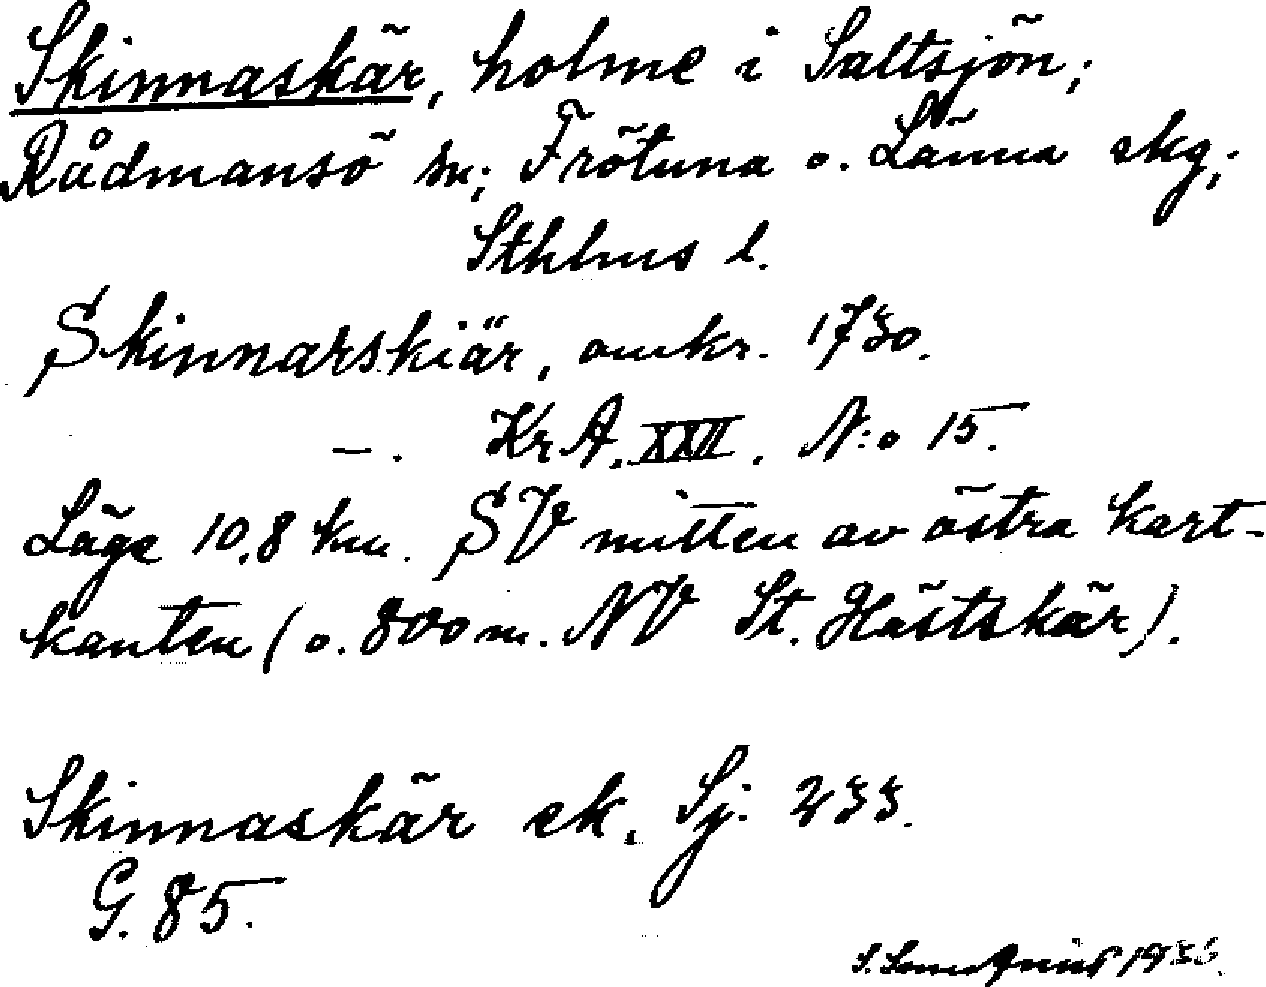 Skinnaskär, holme i Saltsjön;
Rådmansö sn; Frötuna o. Länna skg;
Sthlms l.
Skinnarskiär, omkr. 1730.
–. Kr A. XXII. N:o 15.
Läge 10,8 km. SV mitten av östra kart-
kanten (o. 800 m. NV St. Hästskär).
Skinnaskär ek. Sj. 233.
G. 85.
1936